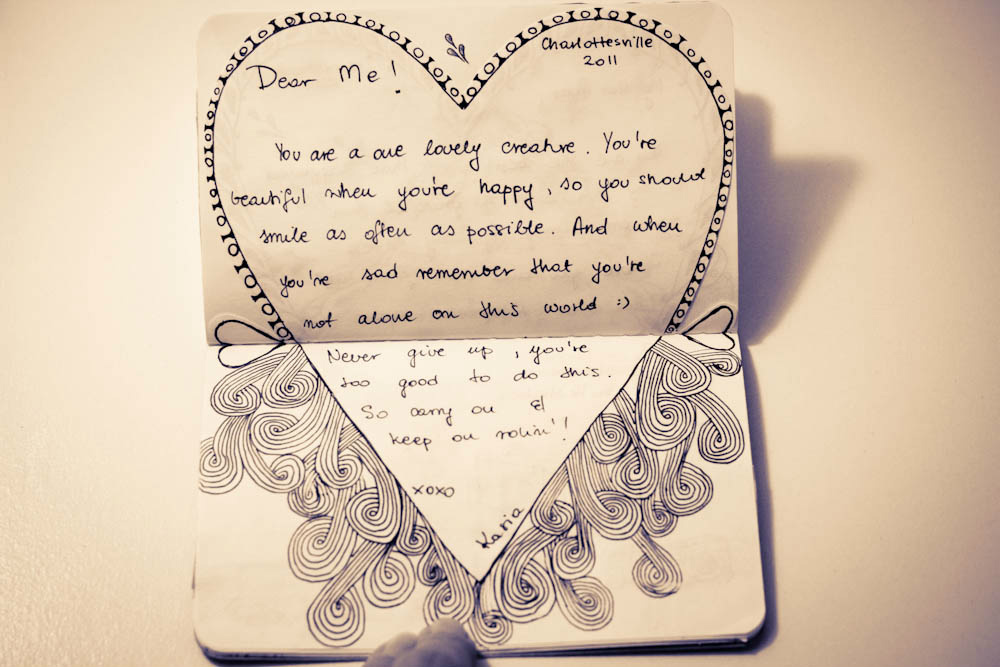 Charlottesville
2011
Dear Me!
You are a one lovely creature. You're
beautiful when you're happy, so you should
smile as often as possible. And when
you're sad remember that you're
not alone on this world :)
Never give up, you're
too good to do this.
So carry on &
keep on rollin'!
xoxo
Karia